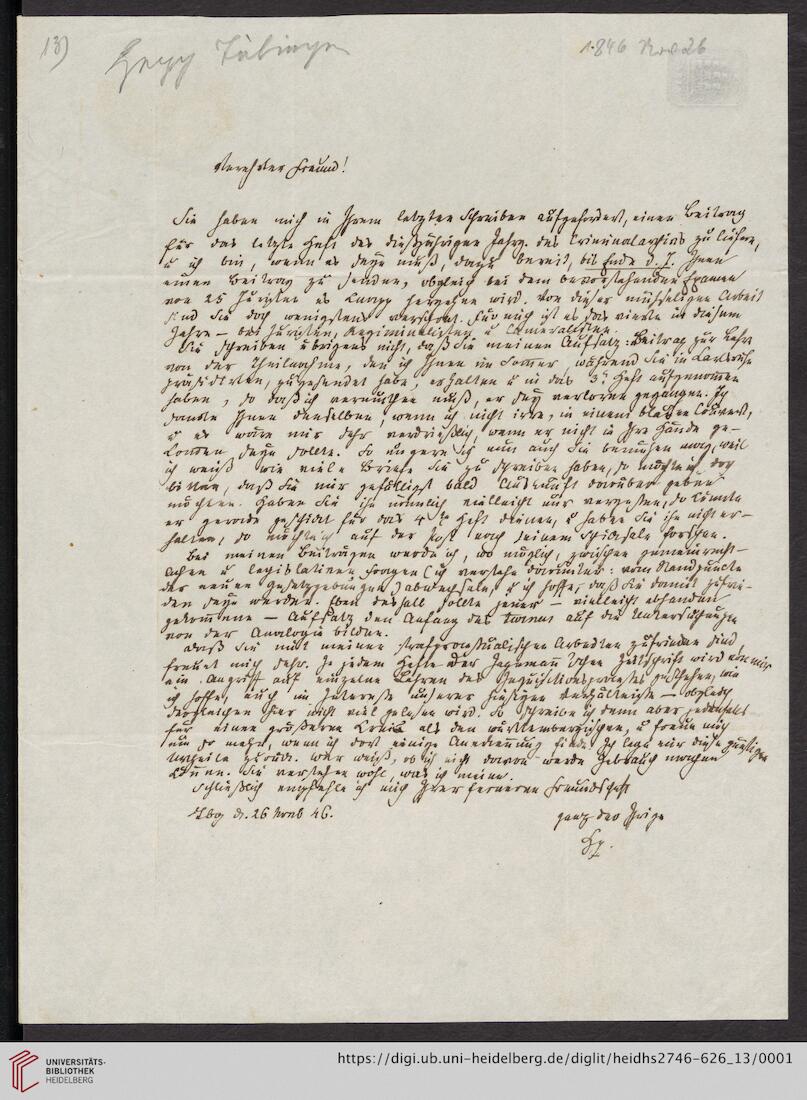 13)
Hepp Tübingen
1846 Nov 26
Verehrter Freund!
Sie haben mich in Ihrem letzten Schreiben aufgefordert, einen Beitrag
für das letzte Heft des diesjährigen Jahrg. des Criminalarchivs zu liefern,
u ich bin, wenn es seyn muß, dazu bereit, bis Ende d. J. Ihnen
einen Beitrag zu senden, obgleich bei dem bevorstehenden Examen
von 25 Juristen es knapp hergehen wird. Von dieser mühseligen Arbeit
sind Sie doch wenigstens verschont. Für mich ist es das vierte in diesem
Jahre – bei Juristen, Regiminalisten u Cameralisten.
Sie schreiben übrigens nicht, daß Sie meinen Aufsatz: Beitrag zur Lehre
von der Theilnahme, den ich Ihnen im Sommer, während Sie in Karlsruhe
präsidirten, zugesendet habe, erhalten u in das 3te Heft aufgenommen
haben, so daß ich vermuthen muß, er sey verloren gegangen. Ich
sandte Ihnen denselben, wenn ich nicht irre, in einem blauen Couvert,
u es wäre mir sehr verdrießlich, wenn er nicht in Ihre Hände ge-
kommen seyn sollte. So ungern ich nun auch Sie bemühen mag, weil
ich weiß wie viele Briefe Sie zu schreiben haben, so möchte ich doch
bitten, daß Sie mir gefälligst bald Auskunft darüber geben
möchten. Haben Sie ihn nämlich vielleicht nur vergessen, so könnte
er gerade geschickt für das 4te Heft dienen, u haben Sie ihn nicht er-
halten, so möchte ich auf der Post nach seinem Schicksale forschen.
Bei meinen Beiträgen werde ich, wo möglich, zwischen gemeinrecht-
lichen u legislativen Fragen (ich verstehe darunter: vom Standpuncte
der neuen Gesetzgebungen) abwechseln, u ich hoffe, daß Sie damit zufrie-
den seyn werden. Eben deshalb sollte jener – vielleicht abhanden
gekommene – Aufsatz den Anfang des auf die Untersuchungen
von der Analogie bilden.
Daß Sie mit meinen strafprocessualischen Arbeiten zufrieden sind,
freuet mich sehr. In jedem Hefte der Jagemann'schen Zeitschrift wird von mir
ein Angriff auf einzelne Lehren des Inquisitionsprocesses geschehen, wie
ich hoffe, auch im Interesse unserer hiesigen Verhältnisse – obgleich
dergleichen hier nicht viel gelesen wird. So schreibe ich denn aber jedenfalls
für einen größeren Kreis als den württembergischen, u freue mich
um so mehr, wenn ich dort einige Anerkennung finde. Ich lege mir diese günstigen
Urtheile zurück. Wer weiß, ob ich nicht davon werde Gebrauch machen
können. Sie verstehen wohl, was ich meine.
Schließlich empfehle ich mich Ihrer ferneren Freundschaft
Tbg d. 26 Novb 46.
ganz der Ihrige
Hp.
UNIVERSITÄTS-
BIBLIOTHEK
HEIDELBERG
https://digi.ub.uni-heidelberg.de/diglit/heidhs2746-626_13/0001